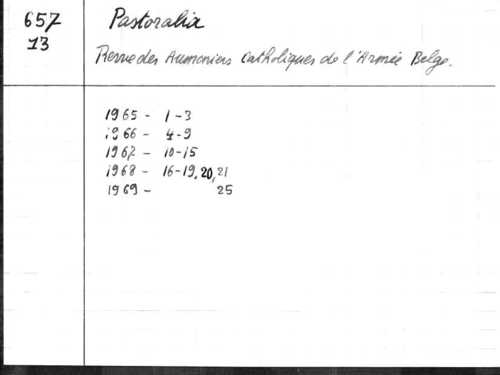 657
13
Pastoralia
Revue des Aumoniers Catholiques de l'Armée Belge.
1965 - 1-3
1966 - 4-9
1967 - 10-15
1968 - 16-19, 20, 21
1969 - 25